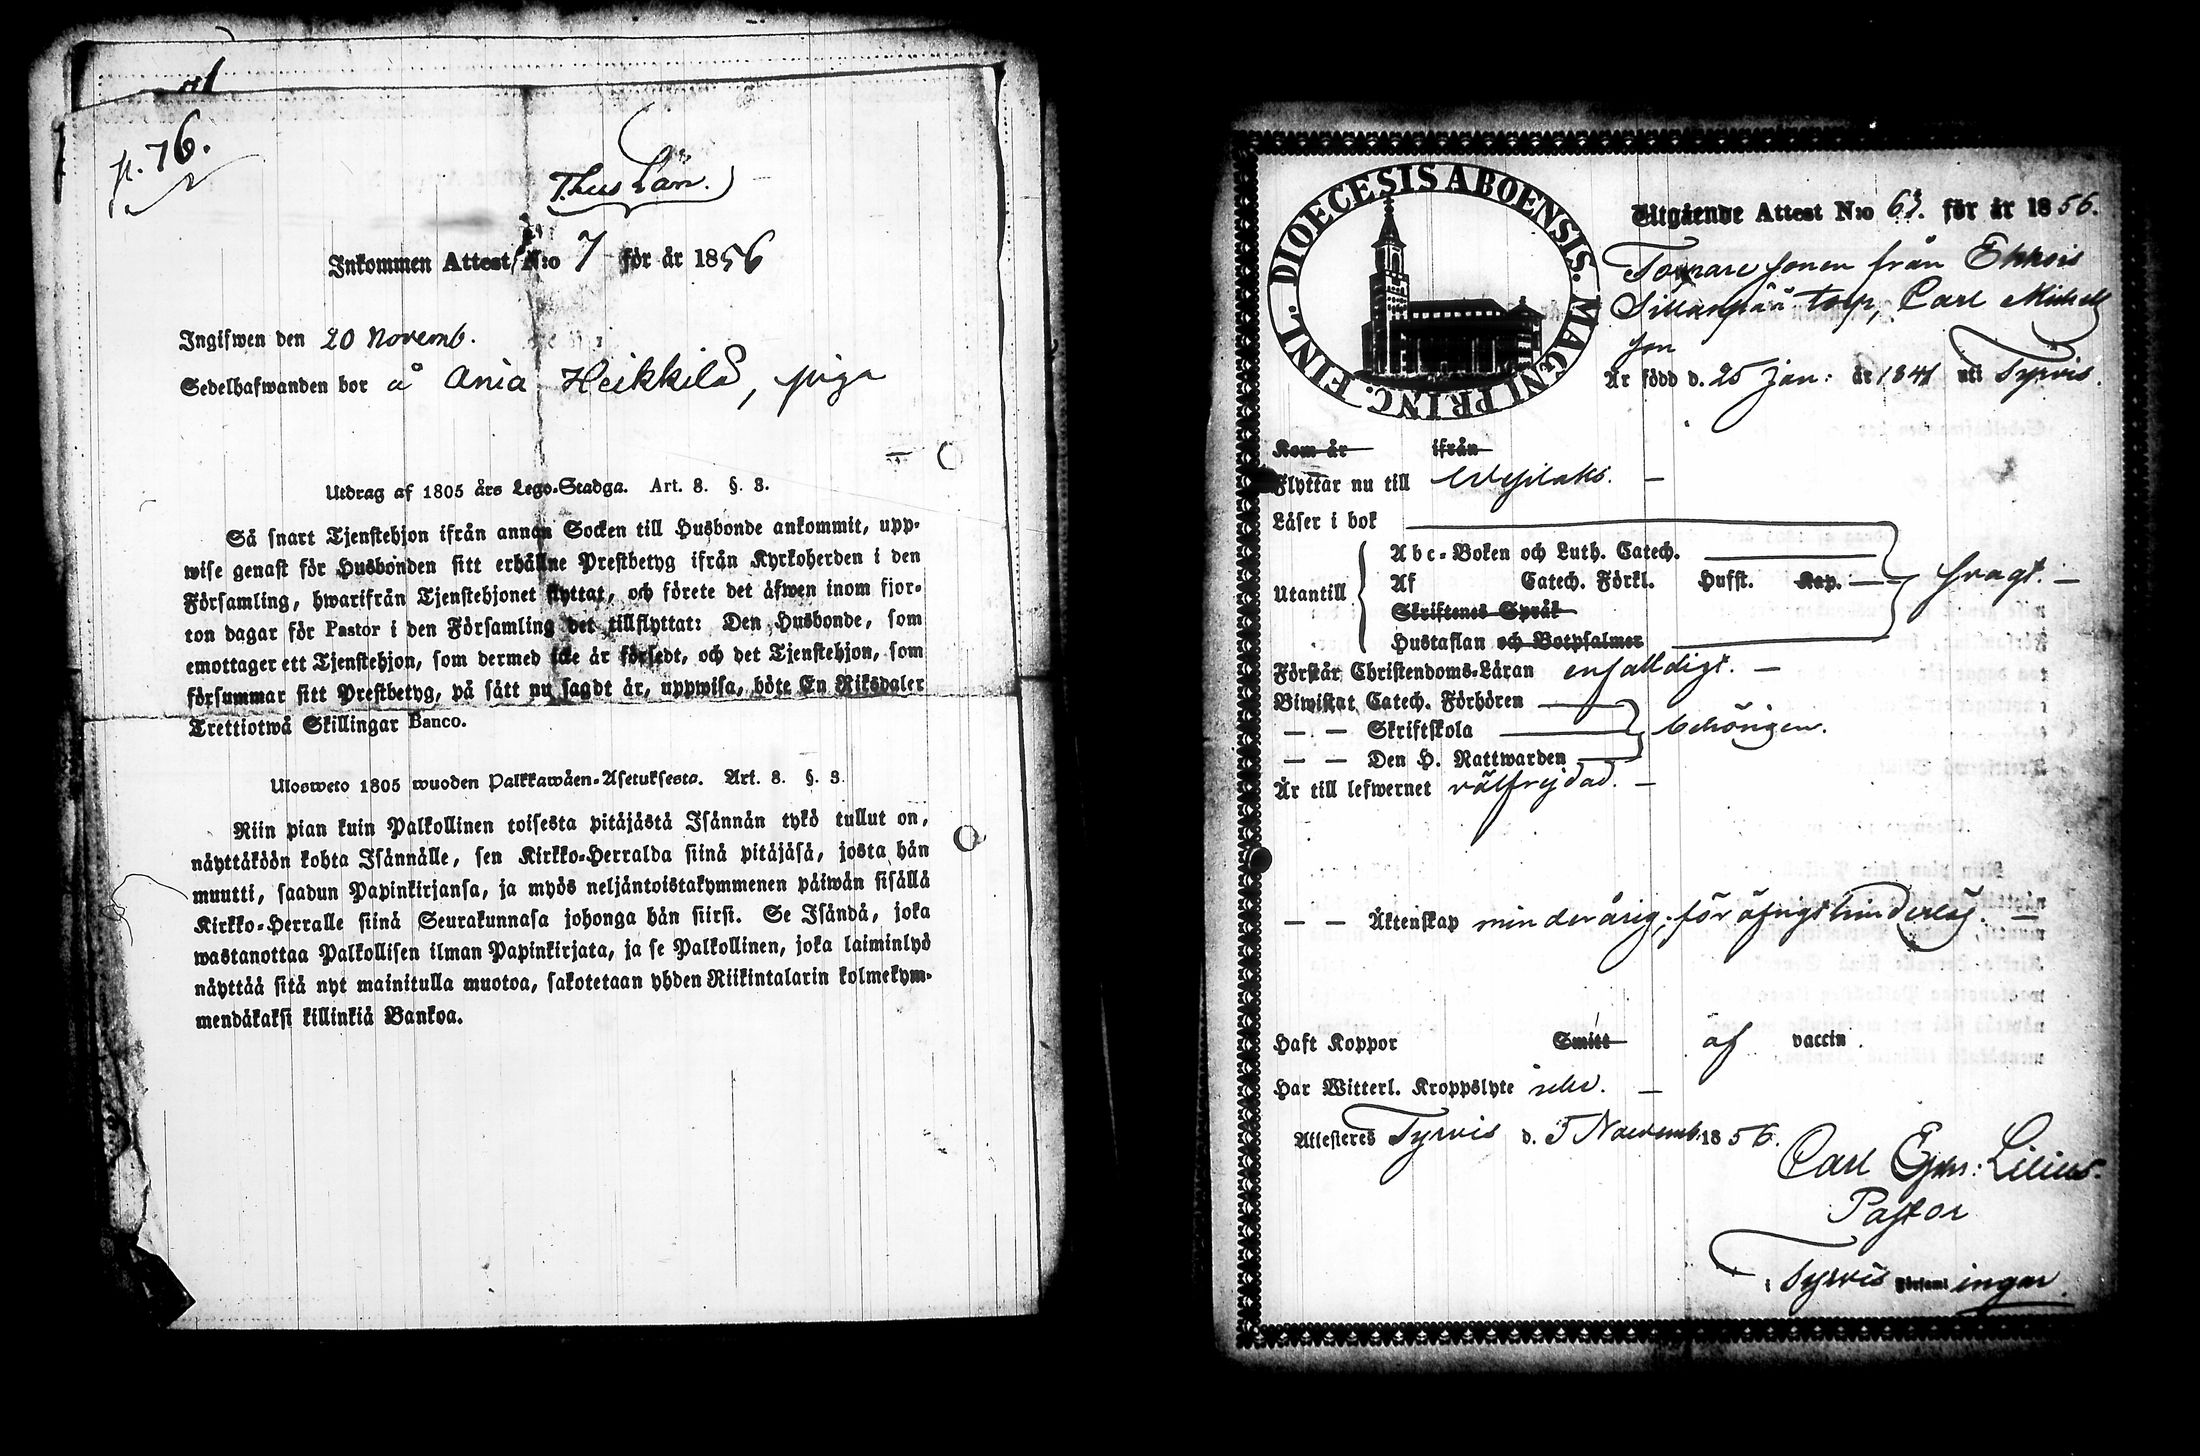 p. 76.
Thus Län.
Inkommen Attest N:o 7 för år 1856
Ingifwen den 20 Novemb.
Sedelhafwanden bor å Ania Heikkilä, piga
Utdrag af 1805 års Lego-Stadga. Art. 3. §. 3.
Så snart Tjenstehjon ifrån annan Socken till Husbonde ankommit, upp-
wise genast för Husbonden sitt erhållne Prestbetyg ifrån Kyrkoherden i den
Församling, hwarifrån Tjenstehjonet flyttat, och förete det äfwen inom fjor-
ton dagar för Pastor i den Församling det tillflyttat: Den Husbonde, som
emottager ett Tjenstehjon, som dermed icke är försedt, och det Tjenstehjon, som
försummar sitt Prestbetyg, på sätt nu sagdt är, uppwisa, böte En Riksdaler
Trettiotwå Skillingar Banco.
Ulosweto 1805 wuoden Palkkawäen-Asetuksesta. Art. 3. §. 3.
Niin pian kuin Palkollinen toisesta pitäjästä Isännän tykö tullut on,
näyttäköön kohta Isännälle, sen Kirkko-Herralda siinä pitäjäsä, josta hän
muutti, saadun Papinkirjansa, ja myös neljäntoistakymmenen päiwän sisällä
Kirkko-Herralle siinä Seurakunnasa johonga hän siirsi. Se Isändä, joka
wastanottaa Palkollisen ilman Papinkirjata, ja se Palkollinen, joka laiminlyö
näyttää sitä nyt mainitulla muotoa, sakotetaan yhden Riikintalarin kolmekym-
mendäkaksi killinkiä Bankoa.
DIOECESIS ABOENSIS. MAGNI PRINC. FINL.
Utgående Attest N:o 63. för år 1856.
Torpare sonen från Ekkois
Sillanpää torp, Carl Michels
son
Är född d. 25 Jan: år 1841 uti Tyrvis.
Kom år ifrån
Flyttar nu till Wesilaks.
Läser i bok
Abc-Boken och Luth. Catech.
Utantill Af Catech. Förkl. Husst. Kap. svagt.
Skriftenes Språk
Hustaflan och Botpsalmer
Förstår Christendoms-Läran enfalldigt.
Biwistat Catech. Förhören
— — Skriftskola behörigen.
— — Den H. Nattwarden
Är till lefwernet välfrejdad.
— — Äktenskap minderårig, för öfrigt hinderlös.
Haft Koppor Smitt af vaccin
Har Witterl. Kroppslyte
Attesteres Tyrvis d. 5 Novemb. 1856.
Carl Lilius.
Pastor
i Tyrvis Församlingar.